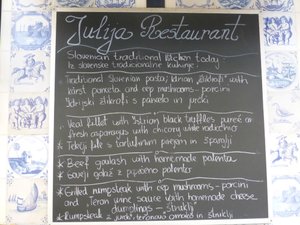 Julija Restaurant
Slovenian traditional kitchen today:
Iz slovenske tradicionalne kuhinje:
* Traditional Slovenian pasta, Idrian "žlikrofi" with
karst panceta and cep mushrooms - porcini
Idrijski žlikrofi s panceto in jurčki
* Veal fillet with Istrian black truffles pureé and
fresh asparagus with chicory wine reduction
* Telečji file s tartufinim pirejem in šparglji
* Beef goulash with homemade polenta
* Goveji golaž z polento
* Grilled rumpsteak with cep mushrooms - porcini
and Teran wine sauce with homemade cheese
dumplings - štruklji
* Rumpsteak z jurčki, teranovo omako in štruklji